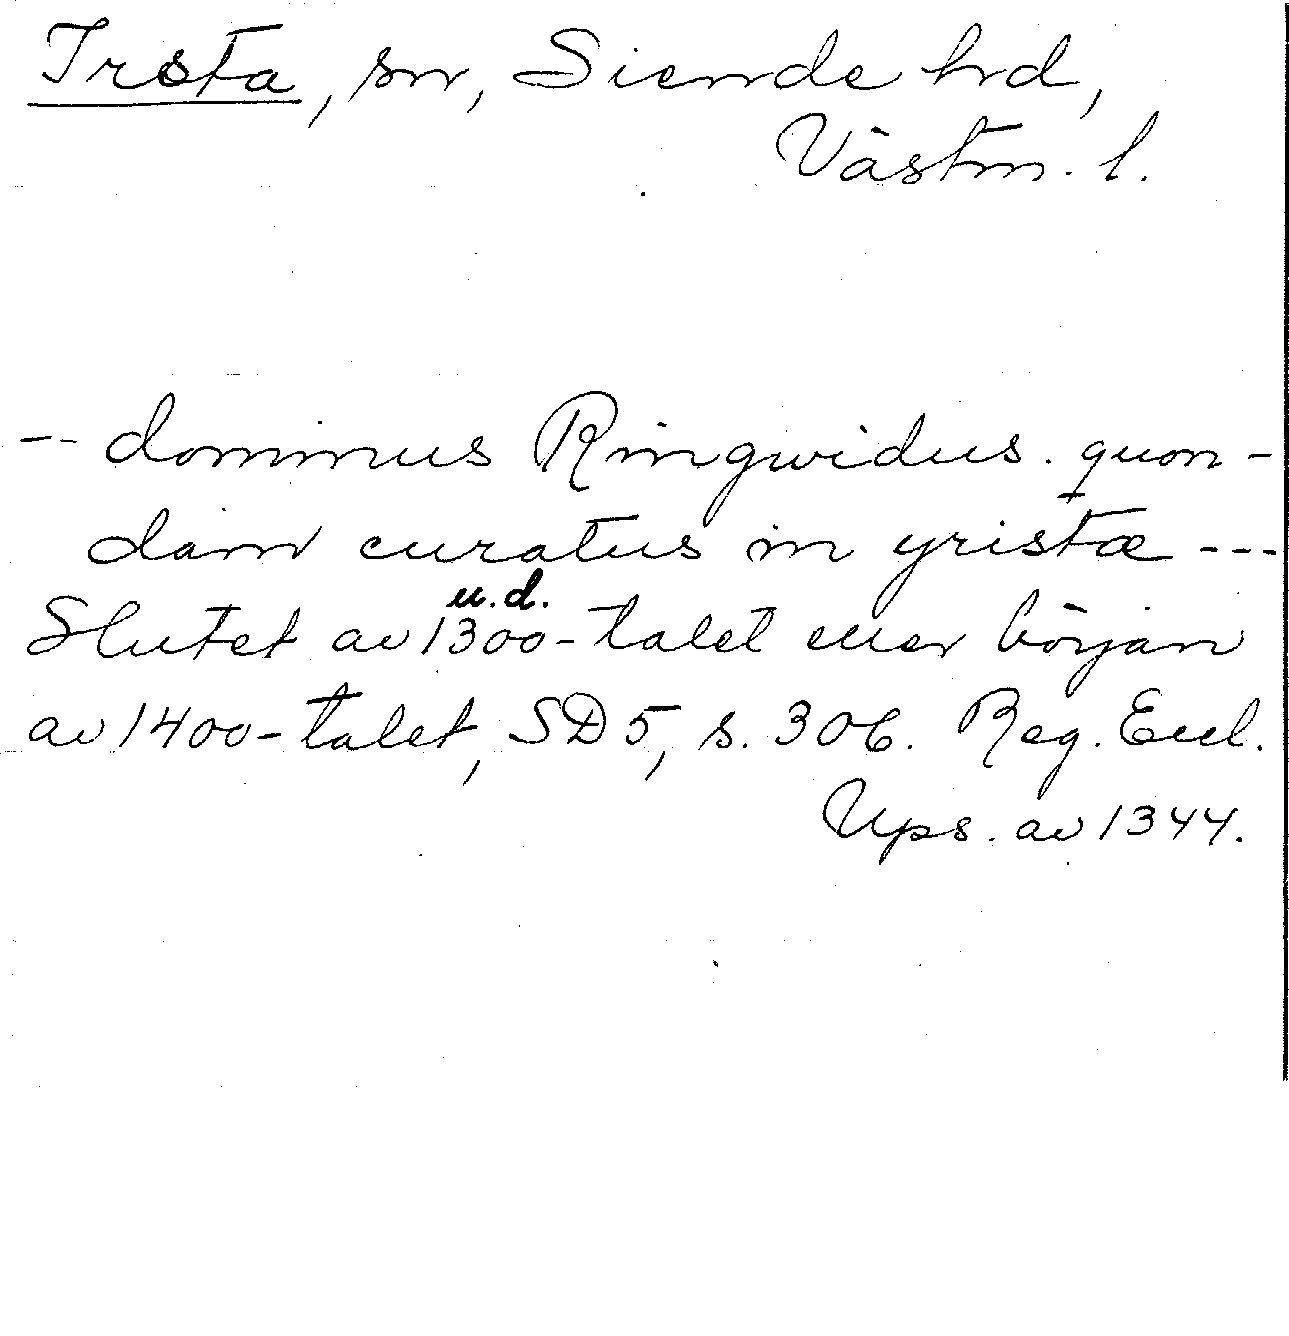 Irsta, sn, Siende hrd,
Västm. l.
-- dominus Ringwidus . quon-
dam curatus in yristæ ---
u.d.
Slutet av 1300-talet eller början
av 1400-talet, SD 5, s. 306. Reg. Eccl.
Ups. av 1344.